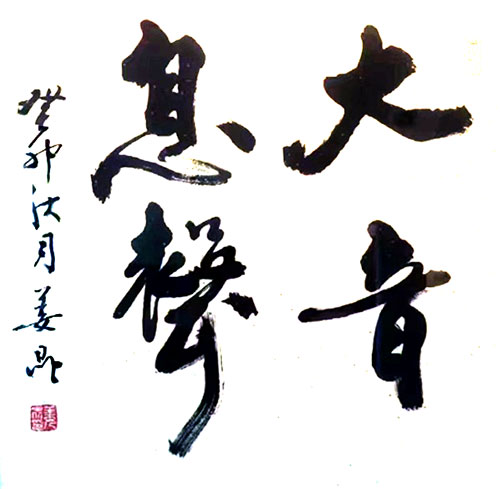 大音
息聲
癸卯秋月姜昆